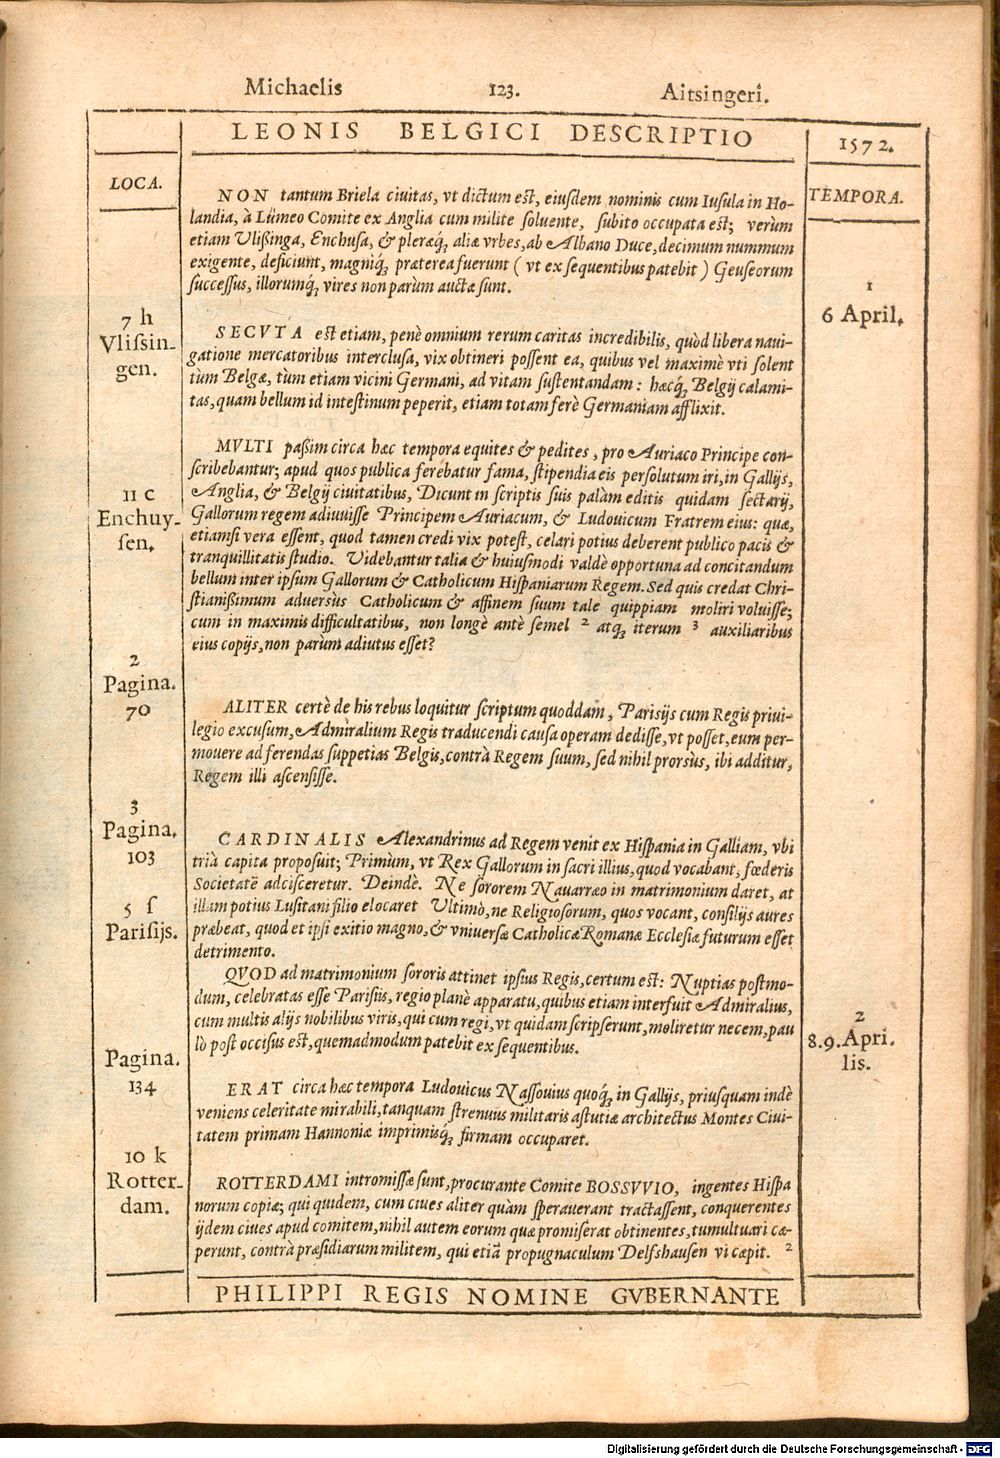 Michaelis 123. Aitsingeri.
LEONIS BELGICI DESCRIPTIO
1572.
LOCA.
TEMPORA.
NON tantum Briela ciuitas, vt dictum eſt, eiuſdem nominis cum Iuſula in Ho-
landia, à Lümeo Comite ex Anglia cum milite ſoluente, ſubito occupata eſt; verùm
etiam Vlißinga, Enchuſa, & pleræq́ꝫ aliæ vrbes, ab Albano Duce, decimum nummum
exigente, deficiunt, magniq́ꝫ præterea fuerunt ( vt ex ſequentibus patebit ) Geuſeorum
ſucceſſus, illorumq́ꝫ vires non parùm auctæ ſunt.
1
6 April.
7 h
Vliſsin-
gen.
SECVTA eſt etiam, penè omnium rerum caritas incredibilis, quòd libera naui-
gatione mercatoribus intercluſa, vix obtineri poſſent ea, quibus vel maximè vti ſolent
tùm Belgæ, tùm etiam vicini Germani, ad vitam ſuſtentandam: hæcq́ꝫ Belgij calami-
tas, quam bellum id inteſtinum peperit, etiam totam ferè Germaniam afflixit.
MVLTI paßim circa hæc tempora equites & pedites, pro Auriaco Principe con-
ſcribebantur; apud quos publica ferebatur fama, ſtipendia eis perſolutum iri, in Gallijs,
Anglia, & Belgij ciuitatibus, Dicunt in ſcriptis ſuis palàm editis quidam ſectarij,
Gallorum regem adiuuiſſe Principem Auriacum, & Ludouicum Fratrem eius: quæ,
etiamſi vera eſſent, quod tamen credi vix poteſt, celari potius deberent publico pacis &
tranquillitatis ſtudio. Videbantur talia & huiuſmodi valdè opportuna ad concitandum
bellum inter ipſum Gallorum & Catholicum Hiſpaniarum Regem. Sed quis credat Chri-
ſtianißimum aduersùs Catholicum & affinem ſuum tale quippiam moliri voluiſſe;
cum in maximis difficultatibus, non longè antè ſemel 2 atqꝫ iterum 3 auxiliaribus
eius copijs, non parùm adiutus eſſet?
11 c
Enchuy-
ſen.
2
Pagina.
70
ALITER certè de his rebus loquitur ſcriptum quoddam, Pariſijs cum Regis priui-
legio excuſum, Admiralium Regis traducendi cauſa operam dediſſe, vt poſſet, eum per-
mouere ad ferendas ſuppetias Belgis, contrà Regem ſuum, ſed nihil prorsùs, ibi additur,
Regem illi aſcenſiſſe.
3
Pagina.
103
5 ſ
Pariſijs.
CARDINALIS Alexandrinus ad Regem venit ex Hiſpania in Galliam, vbi
trià capita propoſuit; Primùm, vt Rex Gallorum in ſacri illius, quod vocabant, fœderis
Societatē adciſceretur. Deindè. Ne ſororem Nauarræo in matrimonium daret, at
illam potius Luſitani filio elocaret Vltimò, ne Religioſorum, quos vocant, conſilijs aures
præbeat, quod et ipſi exitio magno, & vniuerſæ Catholicæ Romanæ Eccleſiæ futurum eſſet
detrimento.
QVOD ad matrimonium ſororis attinet ipſius Regis, certum eſt: Nuptias poſtmo-
dum, celebratas eſſe Pariſiis, regio planè apparatu, quibus etiam interfuit Admiralius,
cum multis alijs nobilibus viris, qui cum regi, vt quidam ſcripſerunt, moliretur necem, pau
lò poſt occiſus eſt, quemadmodum patebit ex ſequentibus.
2
8.9. Apri.
lis.
Pagina.
134
ERAT circa hæc tempora Ludouicus Naſſouius quoq́ꝫ in Gallijs, priuſquam indè
veniens celeritate mirabili, tanquam ſtrenuus militaris aſtutiæ architectus Montes Ciui-
tatem primam Hannoniæ imprimisq́ꝫ firmam occuparet.
10 k
Rotter-
dam.
ROTTERDAMI intromiſſæ ſunt, procurante Comite BOSSVVIO, ingentes Hiſpa
norum copiæ; qui quidem, cum ciues aliter quàm ſperauerant tractaſſent, conquerentes
ijdem ciues apud comitem, nihil autem eorum quæ promiſerat obtinentes, tumultuari cœ-
perunt, contrà præſidiarum militem, qui etiā propugnaculum Delfshauſen vi cœpit. 2
PHILIPPI REGIS NOMINE GVBERNANTE
Digitalisierung gefördert durch die Deutsche Forschungsgemeinschaft - DFG